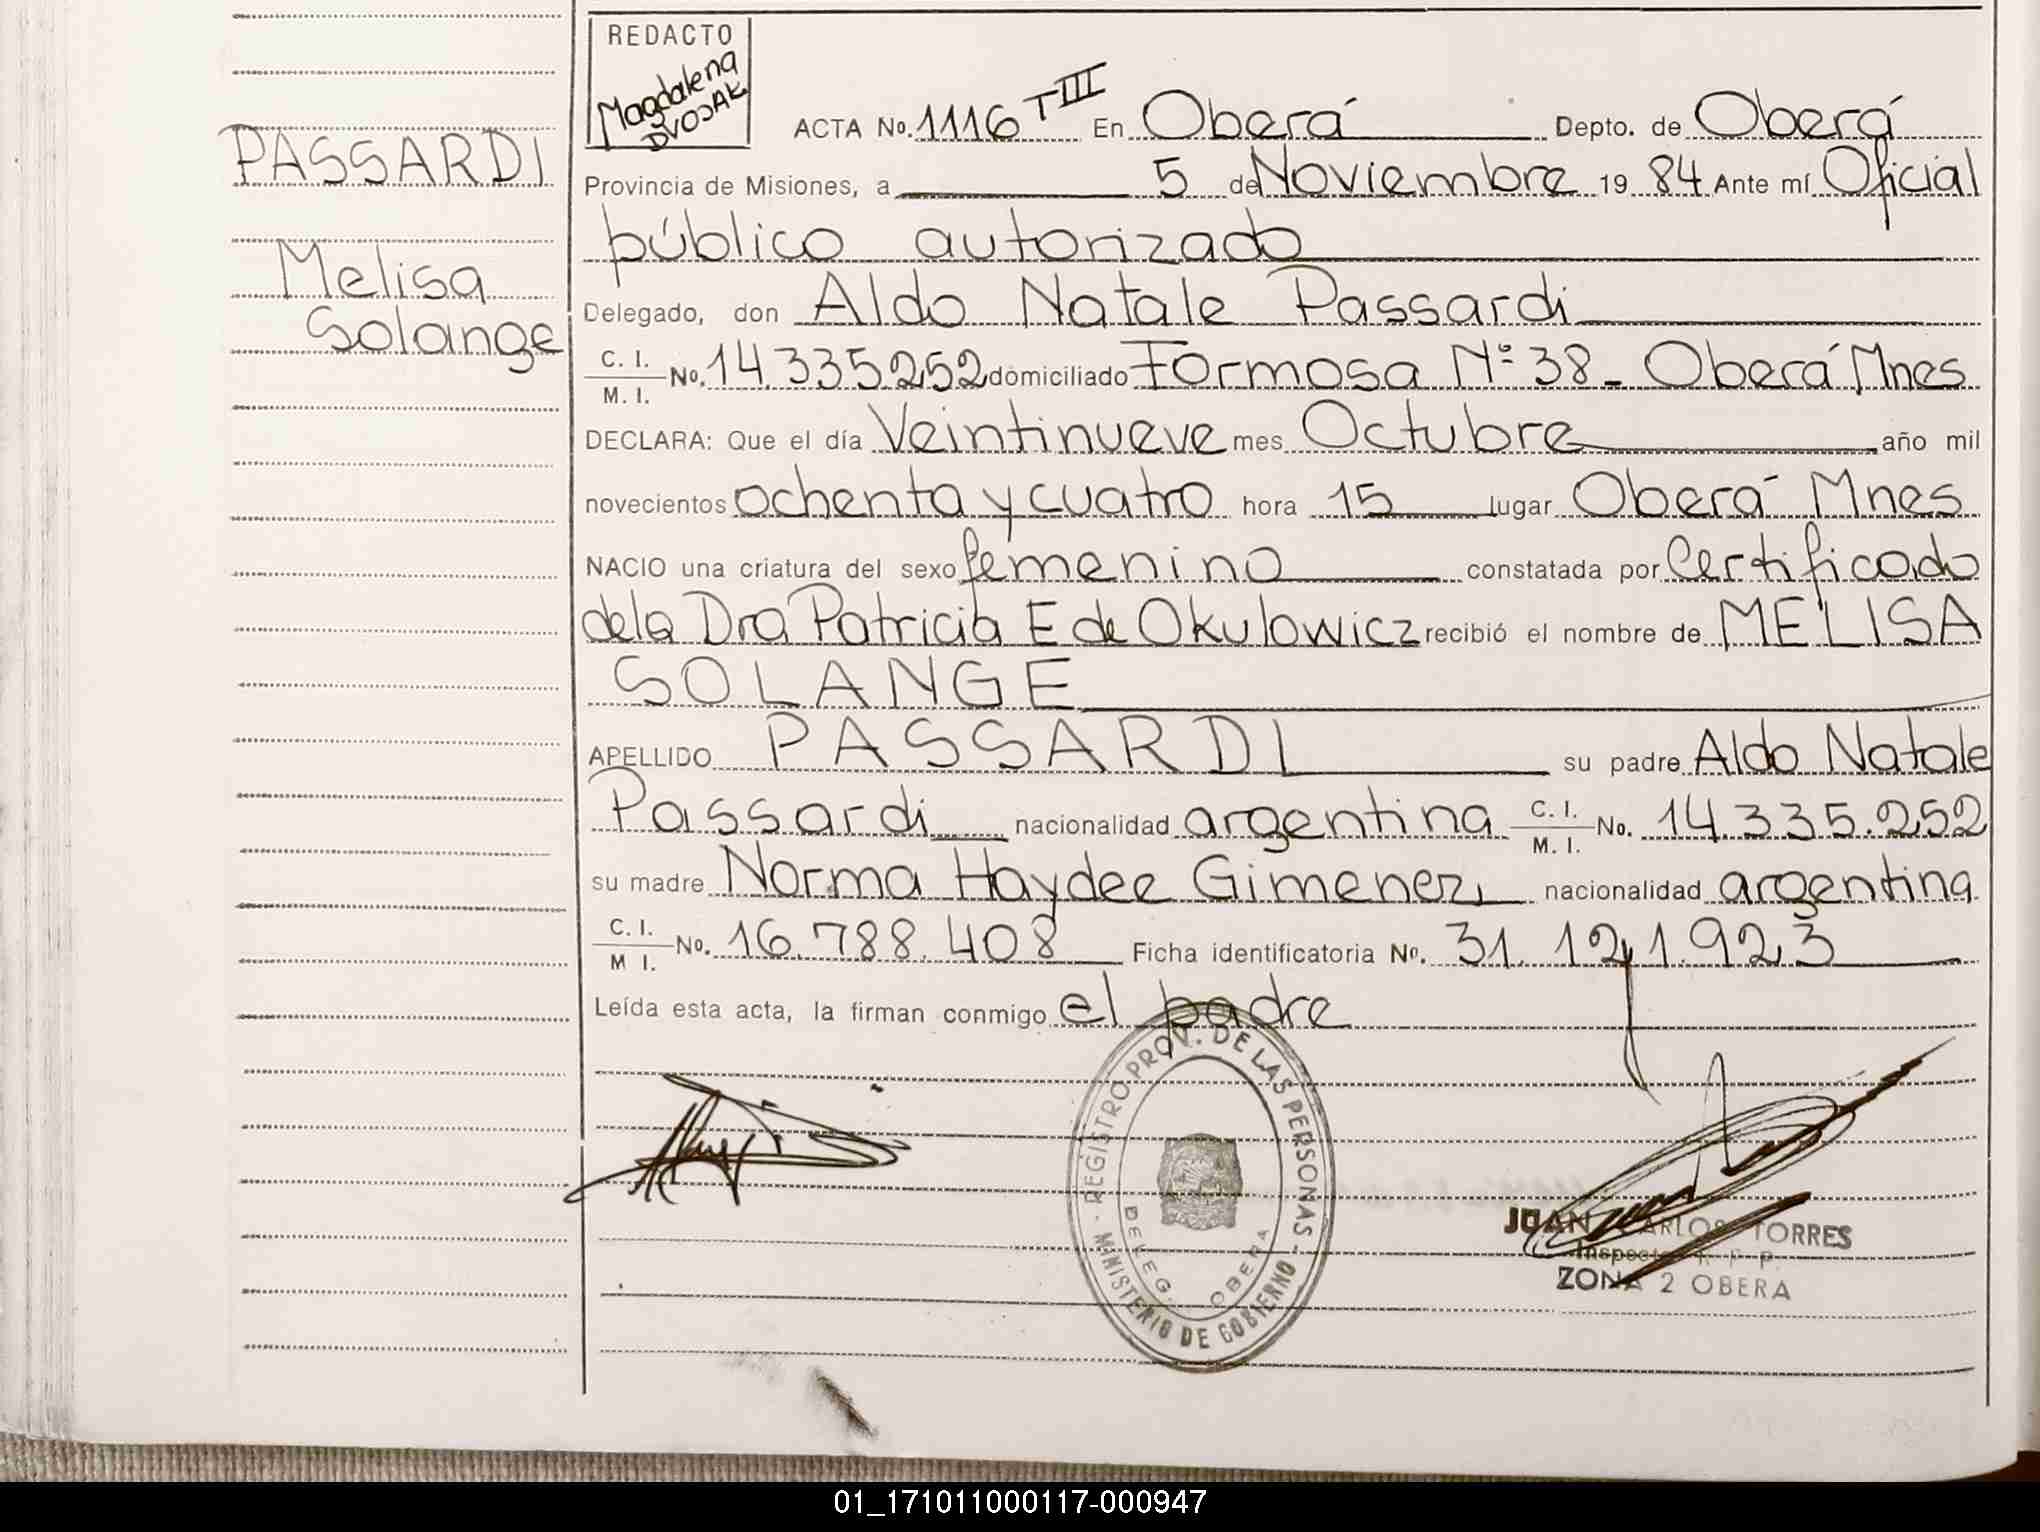 REDACTO
Magdalena
DVOJAK
PASSARDI
Melisa
Solange
ACTA No. 1116 TIII En Oberá Depto. de Oberá
Provincia de Misiones, a 5 de Noviembre 19 84 Ante mí Oficial
público autorizado
Delegado, don Aldo Natale Passardi
C. I. / M. I. No. 14.335.252 domiciliado Formosa Nº 38 - Oberá Mnes
DECLARA: Que el día Veintinueve mes Octubre año mil
novecientos ochenta y cuatro hora 15 lugar Oberá Mnes
NACIO una criatura del sexo femenino constatada por Certificado
de la Dra Patricia E de Okulowicz recibió el nombre de MELISA
SOLANGE
APELLIDO PASSARDI su padre Aldo Natale
Passardi nacionalidad argentina C. I. / M. I. No. 14.335.252
su madre Norma Haydee Gimenez nacionalidad argentina
C. I. / M I. No. 16.788.408 Ficha identificatoria No. 31.121.923
Leída esta acta, la firman conmigo el padre
REGISTRO PROV. DE LAS PERSONAS - MINISTERIO DE GOBIERNO -
DELEG. OBERA
JUAN CARLOS TORRES
Inspector R. P. P.
ZONA 2 OBERA
01_171011000117-000947